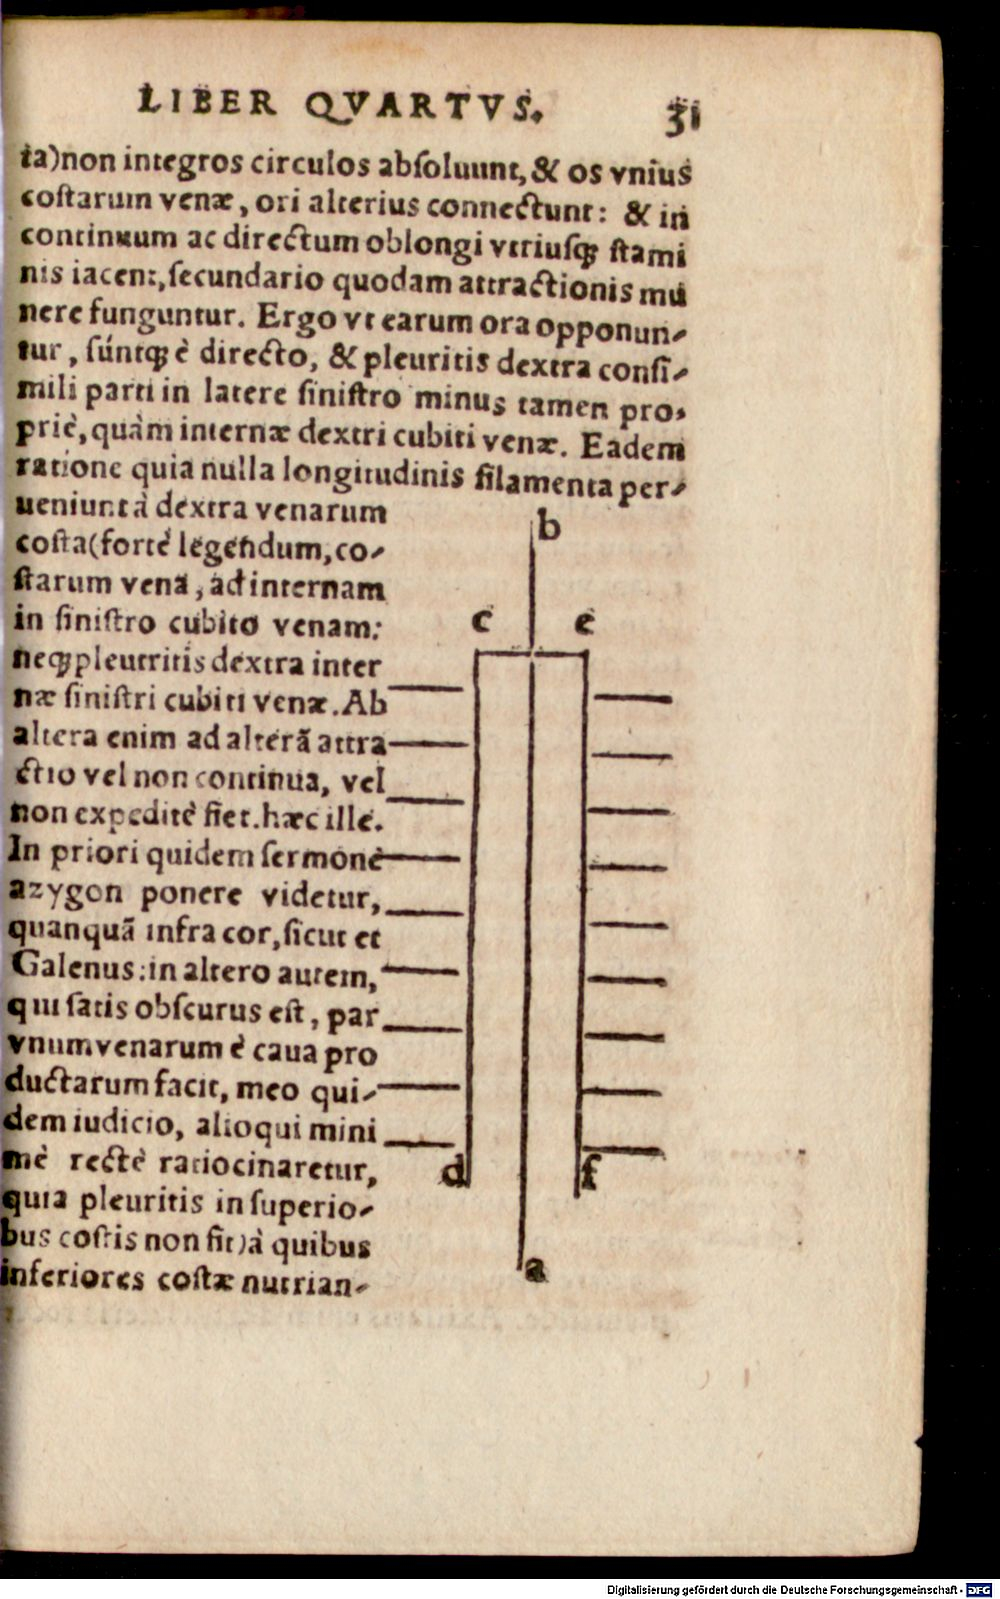 LIBER QVARTVS. 31
ta)non integros circulos absoluunt, & os vnius
costarum venæ, ori alterius connectunt: & in
continuum ac directum oblongi vtriusq; stami
nis iacent, secundario quodam attractionis mu
nere funguntur. Ergo vt earum ora opponun-
tur, súntq; è directo, & pleuritis dextra consi-
mili parti in latere sinistro minus tamen pro-
priè, quàm internæ dextri cubiti venæ. Eadem
ratione quia nulla longitudinis filamenta per-
ueniunt à dextra venarum
costa(forte legendum, co-
starum vena, ad internam
in sinistro cubito venam:
neq; pleutritis dextra inter
næ sinistri cubiti venæ. Ab
altera enim ad alterã attra
ctio vel non continua, vel
non expeditè fiet. hæc ille.
In priori quidem sermone
azygon ponere videtur,
quanquã infra cor, sicut et
Galenus: in altero autem,
qui satis obscurus est, par
vnum venarum è caua pro
ductarum facit, meo qui-
dem iudicio, alioqui mini
mè rectè ratiocinaretur,
quia pleuritis in superio-
bus costis non fit)à quibus
inferiores costæ nutrian-
b
c e
d f
a
Digitalisierung gefördert durch die Deutsche Forschungsgemeinschaft - DFG